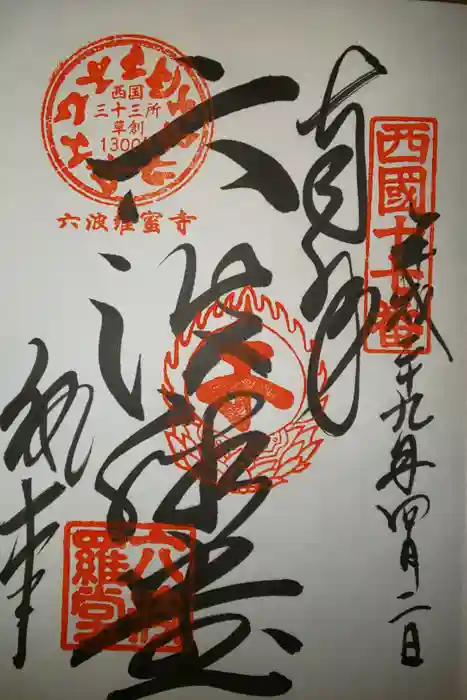 西国
三十三所
草創
1300年
六波羅蜜寺
西國十七番
奉拝
平成二十九年四月二日
六波羅堂
六波
羅堂